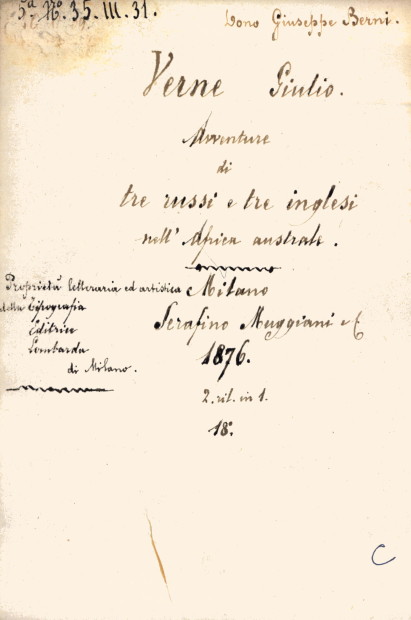 5ª Nº 35. III. 31.
Dono Giuseppe Berni.
Verne Giulio.
Avventure
di
tre russi e tre inglesi
nell' Africa australe.
Proprietà letteraria ed artistica
della Tipografia
Editrice
Lombarda
di Milano.
Milano
Serafino Muggiani e C
1876.
2. in 1.
18º.
C